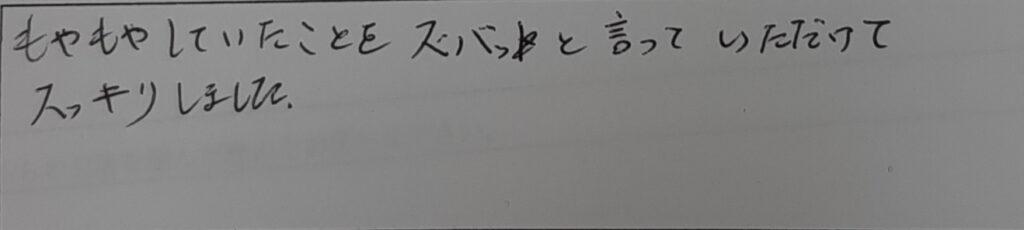 もやもやしていたことを ズバッと言って いただけて
スッキリしました.